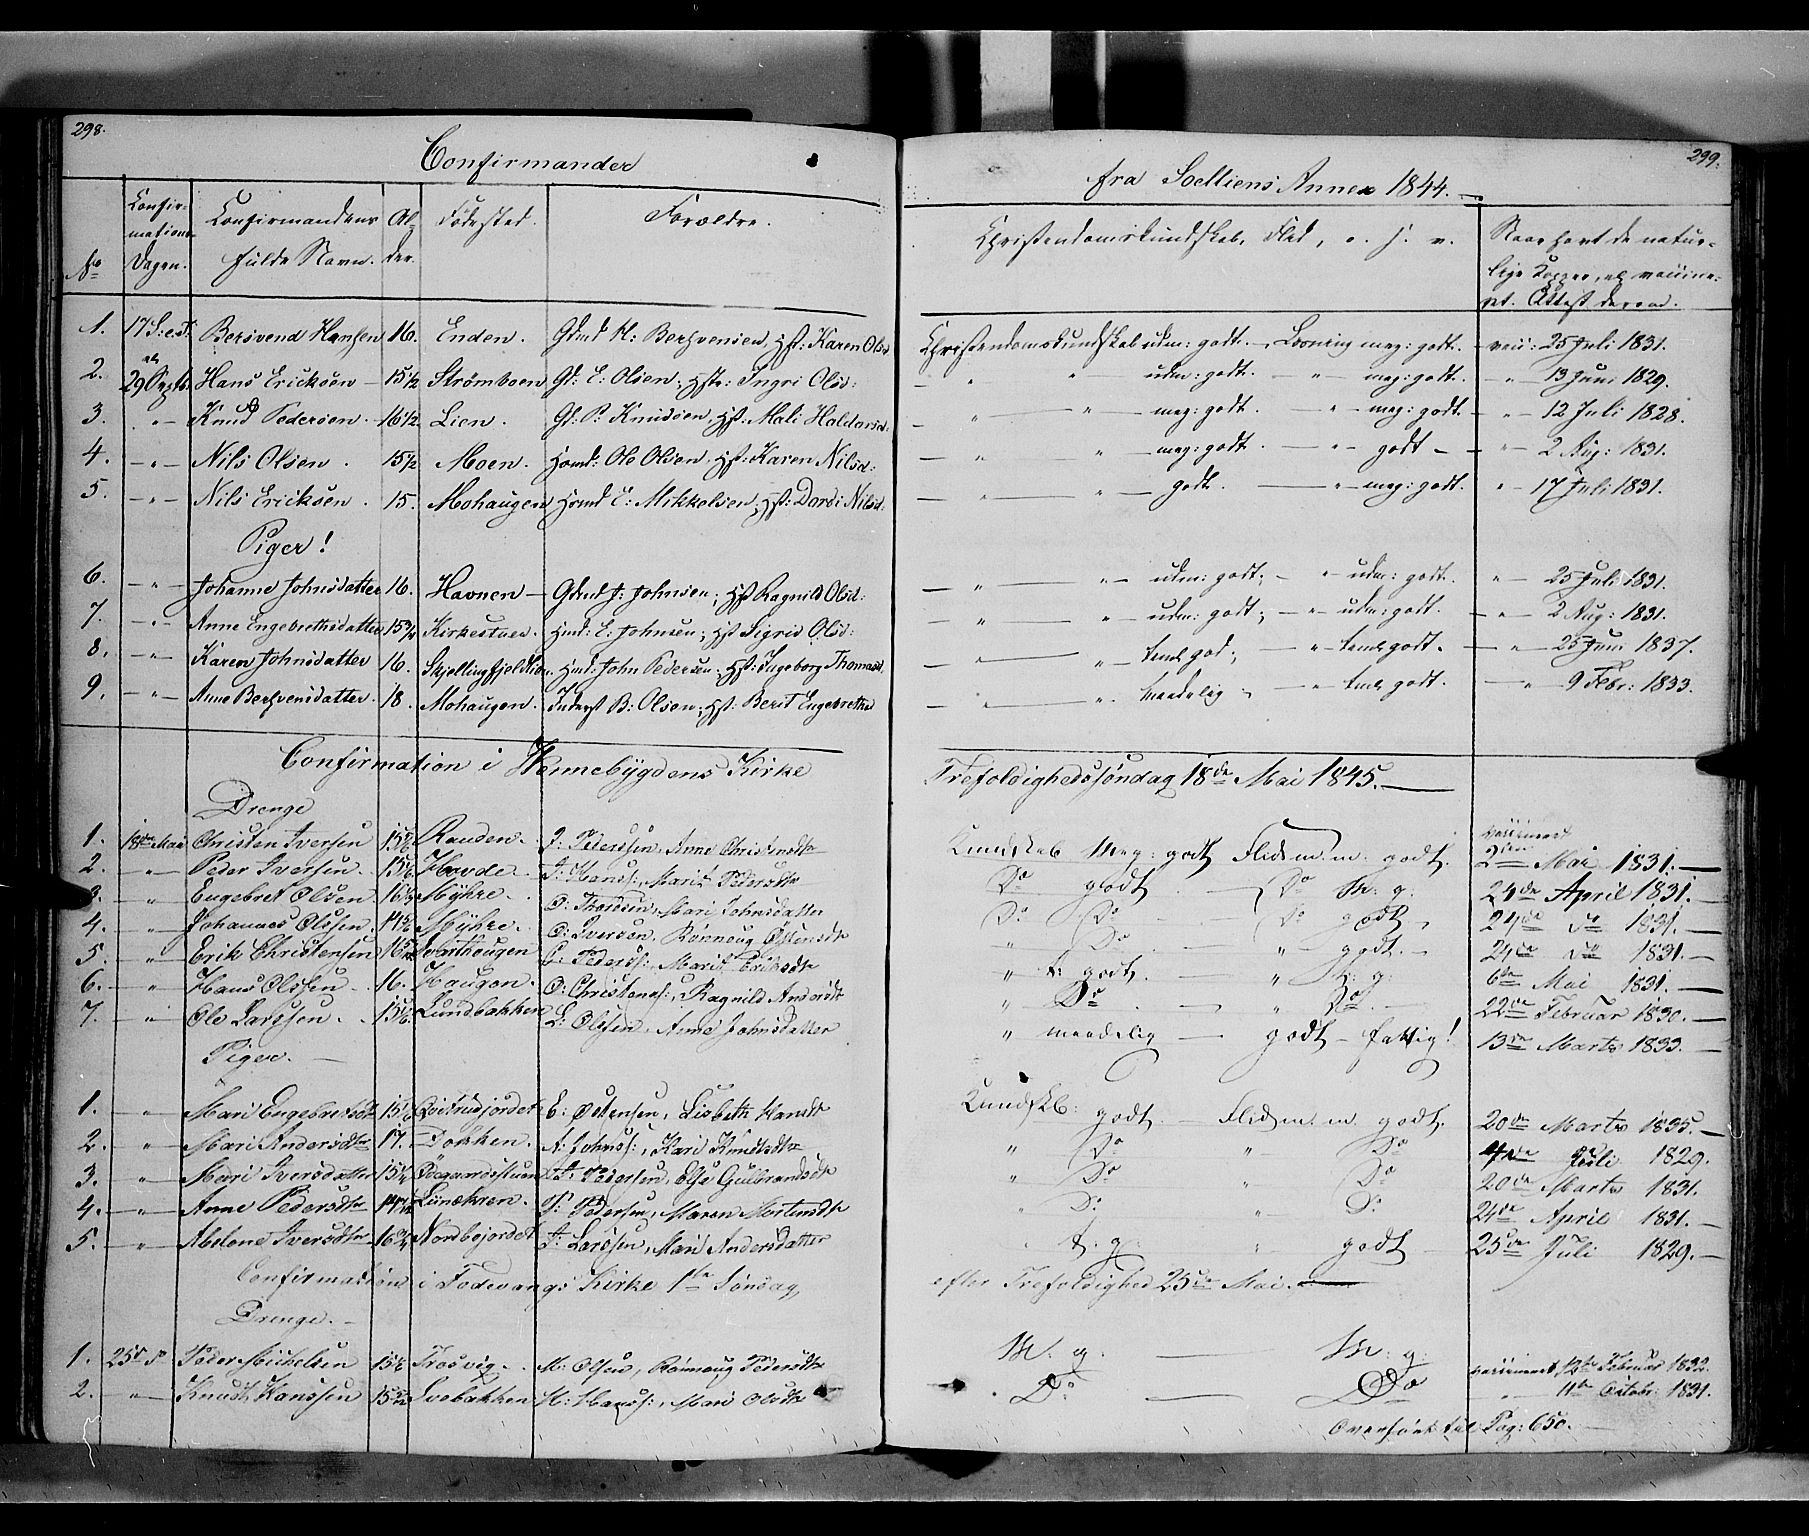 298.
Confirmander
No
Confirmations Dagen.
Confirmandens fulde Navn.
Alder.
Fødested.
Forældre.
1. 17 S: e. T: Bersvend Hansen 16. Enden. Gdmd H: Bersvensen, Hst: Karen Olsd
2. 29 Septb. Hans Ericksen 15 1/2 Strømboen Gd: E: Olsen; Hstr: Ingri Olsd:
3. " Knud Pedersen. 16 1/2 Lien. Gd: P: Knudsen, Hst: Mali Haldorsd:
4. " Nils Olsen. 15 1/2 Moen. Hsmd: Ole Olsen, Hst: Karen Nilsd:
5. " Nils Ericksen. 15. Mohaugen Hsmd E: Mikkelsen, Hst: Dordi Nilsd:
Piger!
6. " Johanne Johnsdatter 16. Havnen Gdmd J: Johnsen; Hst Ragnild Olsd:
7. " Anne Engebrethsdatter 15 3/4 Kirkestuen. Hmd: E: Johnsen; Hst Sigrid Olsd:
8. " Karen Johnsdatter 16. Hmd: John Pedersen. Hst: Ingeborg Thomasd.
9. " Anne Bersvensdatter. 18. Mohaugen. Inderst B: Olsen; Hst: Berit Engebrethsd
Confirmation i Vennebygdens Kirke
Drenge
1. 18de Mai Christen Iversen Randen. I: Pedersen, Anne Christensdtr
2. " Peder Iversen. Hovde. I: Hanss:, Marit Pedersdtr
3. " Engebret Olsen Myhre. O: Thordsen, Mari Johnsdatter
4. " Johannes Olssen Myhre. O: Iversen. Rønnoug Østensdtr
5. " Erik Christensen Svarthaugen C: Pederss:, Marit Eriksdtr
6. " Hans Olssen 16. Haugen. O: Christens:, Ragnild Andersdtr
7. " Ole Larssen. Lundbakken L: Olssen, Anne Johnsdatter
Piger.
1. " Mari Engebretsdtr E: Østensen, Lisbeth Hansdtr
2. " Mari Andersdtr 17. Bakken. A: Johnss:, Kari Knudsdtr
3. " Mari Iversdatter I: Pedersen, Else Gulbrandsdtr
4. " Anne Pedersdtr P: Pedersen, Maren Mortensdtr
5. " Abelone Iversdtr Nordbojordet I: Larssen, Mari Andersdatter
Confirmation i Fodevangs Kirke 1ste Søndag
Drenge.
1. 25de Do Peder Michelsen Trosvig. M: Olsen, Rønnoug Pedersdtr
2. " Knud Hanssen Lvebakken H: Hanss:, Mari Olsdtr
299.
fra Solliens Annex 1844.
Christendomskundskab, Flid, o. s. v.
Naar havt de naturlige Kopper, el vaccineret. Attest derom.
Christendomskundskab udm: godt. Læsning meg: godt. vacc: 25 Juli 1831.
" " udm: godt. " meg: godt. " 13 Juni 1829.
" " meg: godt. " meg: godt. " 12 Juli 1828.
" " meg: godt. " godt " 2 Aug: 1831.
" " godt. " meg: godt. " 17 Juli 1831.
" " udm: godt; " udm: godt. " 25 Juli 1831.
" " udm: godt; " udm: godt. " 2 Aug: 1831.
" " teml. god; " teml godt. " 25 Juni 1837.
" " maadelig " teml godt. " 9 Febr: 1833.
Trefoldighedssøndag 18de Mai 1845.
Kundskab Meg: godt Flid m. m: godt. vaccineret
2den Mai 1831.
Do godt Do M: g: 24de April 1831.
Do Do Do godt 24de do 1831.
" Do " godt. 24de do 1831.
" t: godt. " M: g: 6te Mai 1831.
" Do " Do. 22de Februar 1830.
" maadelig godt fattig! 13de Marts 1833.
Kundskb: godt. Flid m. m. godt. 20de Marts 1835.
" Do " Do 4de Juli 1829.
" Do " Do 20de Marts 1831.
" Do " Do 24de April 1831.
t: g: " godt 25de Juli 1829.
efter Trefoldighed 25de Mai.
M: g. M: g: vaccineret 12te Februar 1832.
Do Do " 11te Octobr: 1831.
Overført til Pag: 650.